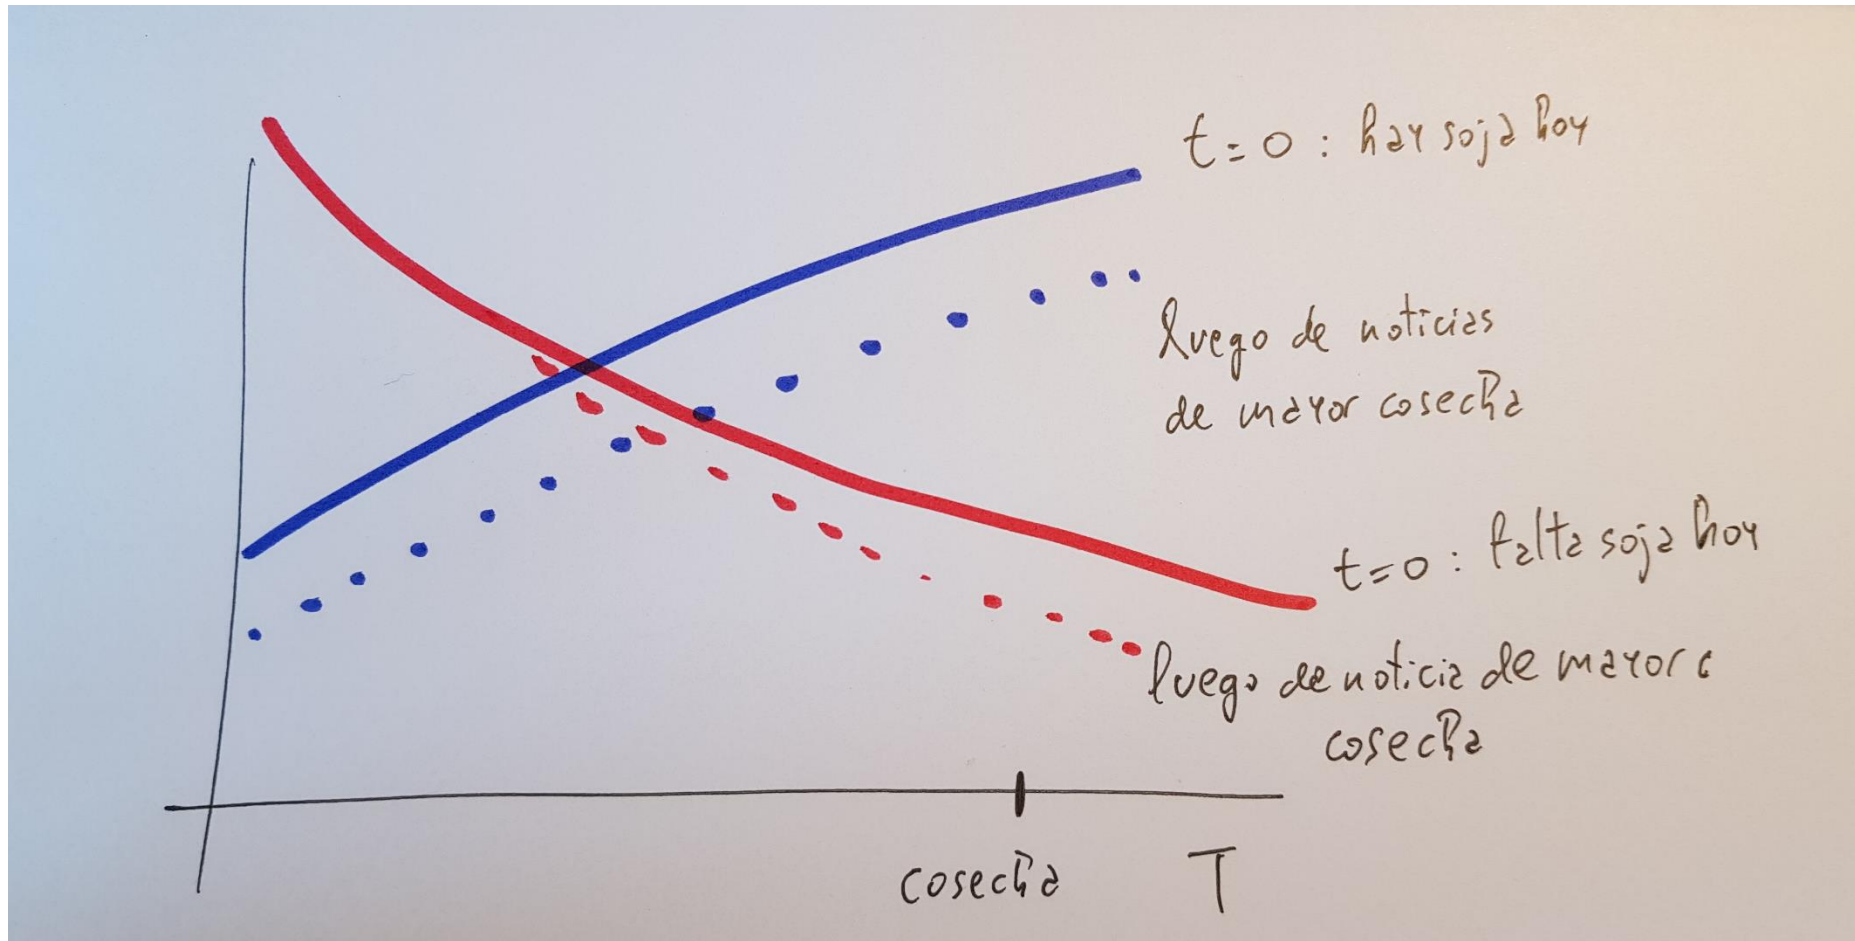 t=0 : hay soja hoy
luego de noticias
de mayor cosecha
t=0 : falta soja hoy
luego de noticia de mayor c
cosecha
cosecha T